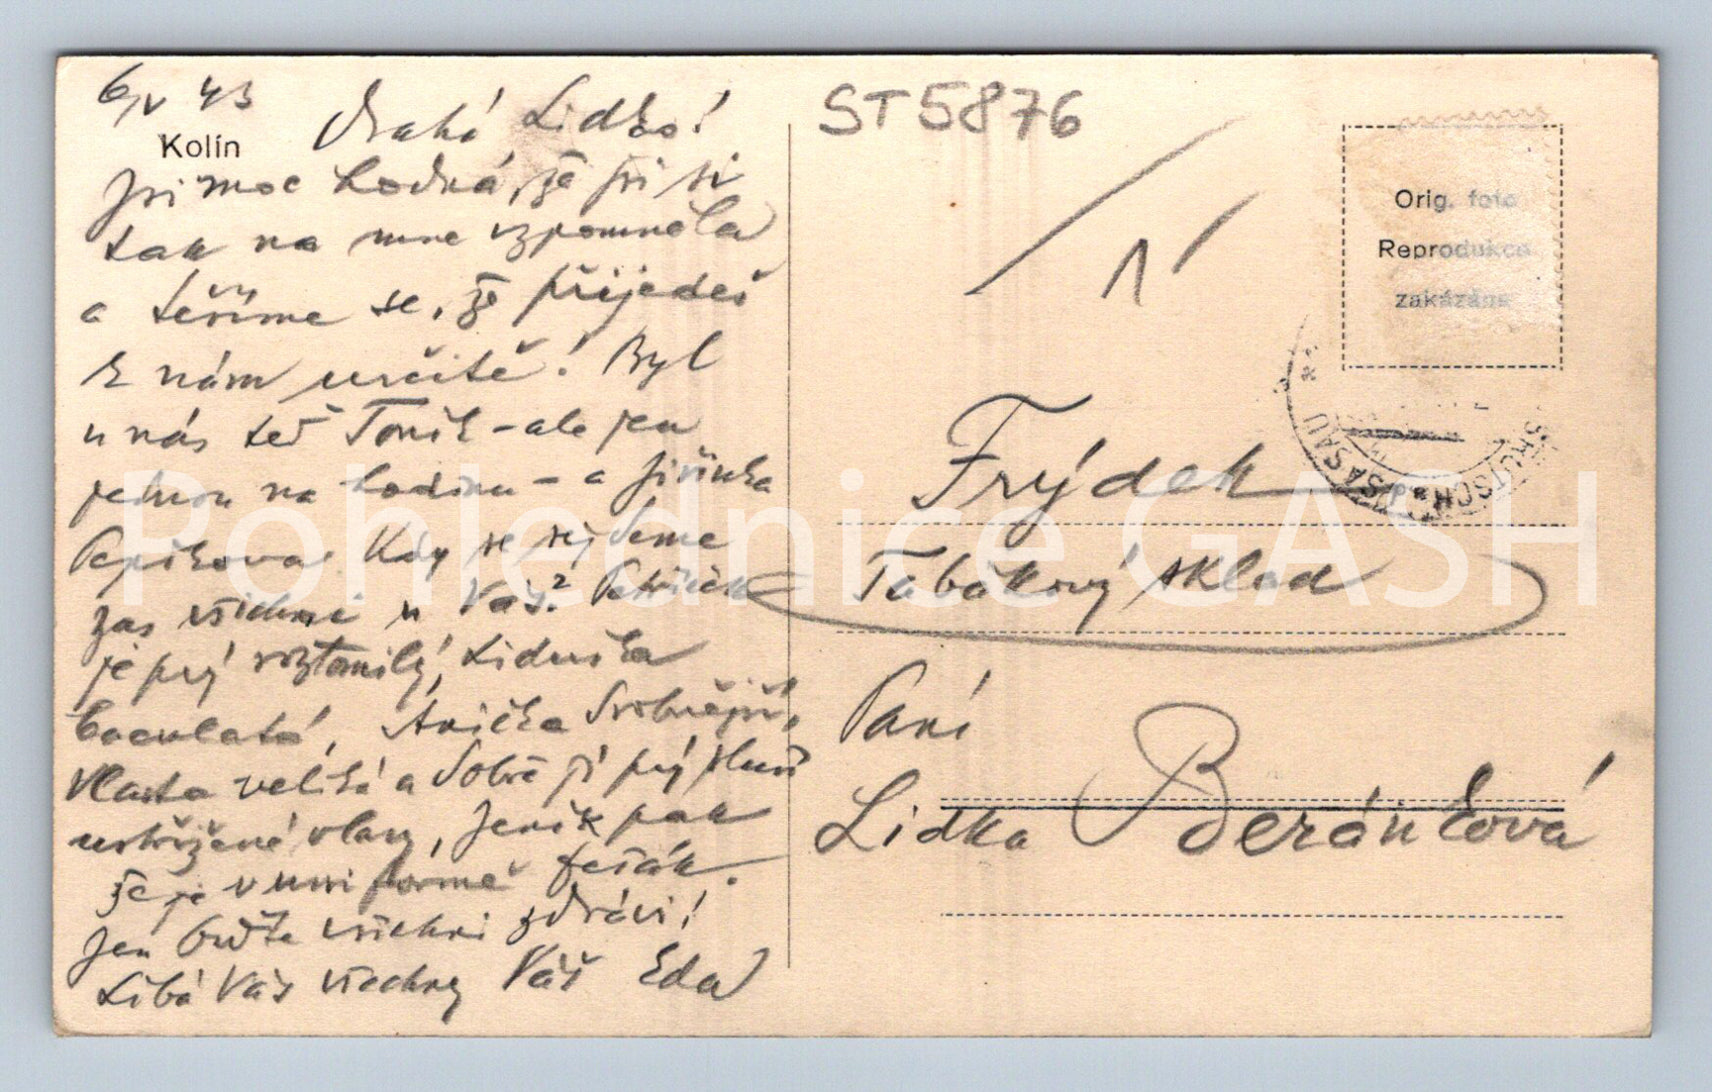 6/V 43
Kolín
Drahá Lidko!
Jsi moc hodná, že jsi si
tak na mne vzpomněla
a těšíme se, že přijedeš
k nám určitě! Byl
u nás teď Toník – ale jen
jednu na hodinu – a Jiřinka
Pepíkova. Kdy se sejdeme
zas všichni u Vás? Petříček
je prý roztomilý, Liduška
boculatá, Anička drobnější,
Vlasta veliká a dobře jí prý sluší
ustřižené vlasy, Jeník pak
že je v uniformě fešák.
Jen buďte všichni zdrávi!
Líbá Vás všechny Váš Eda
ST5876
1
Orig. foto
Reprodukce
zakázána
SKUTSCH a. d. SASAU
Frýdek
Tabákový sklad
Paní
Lidka Beránková
Pohlednice GASH